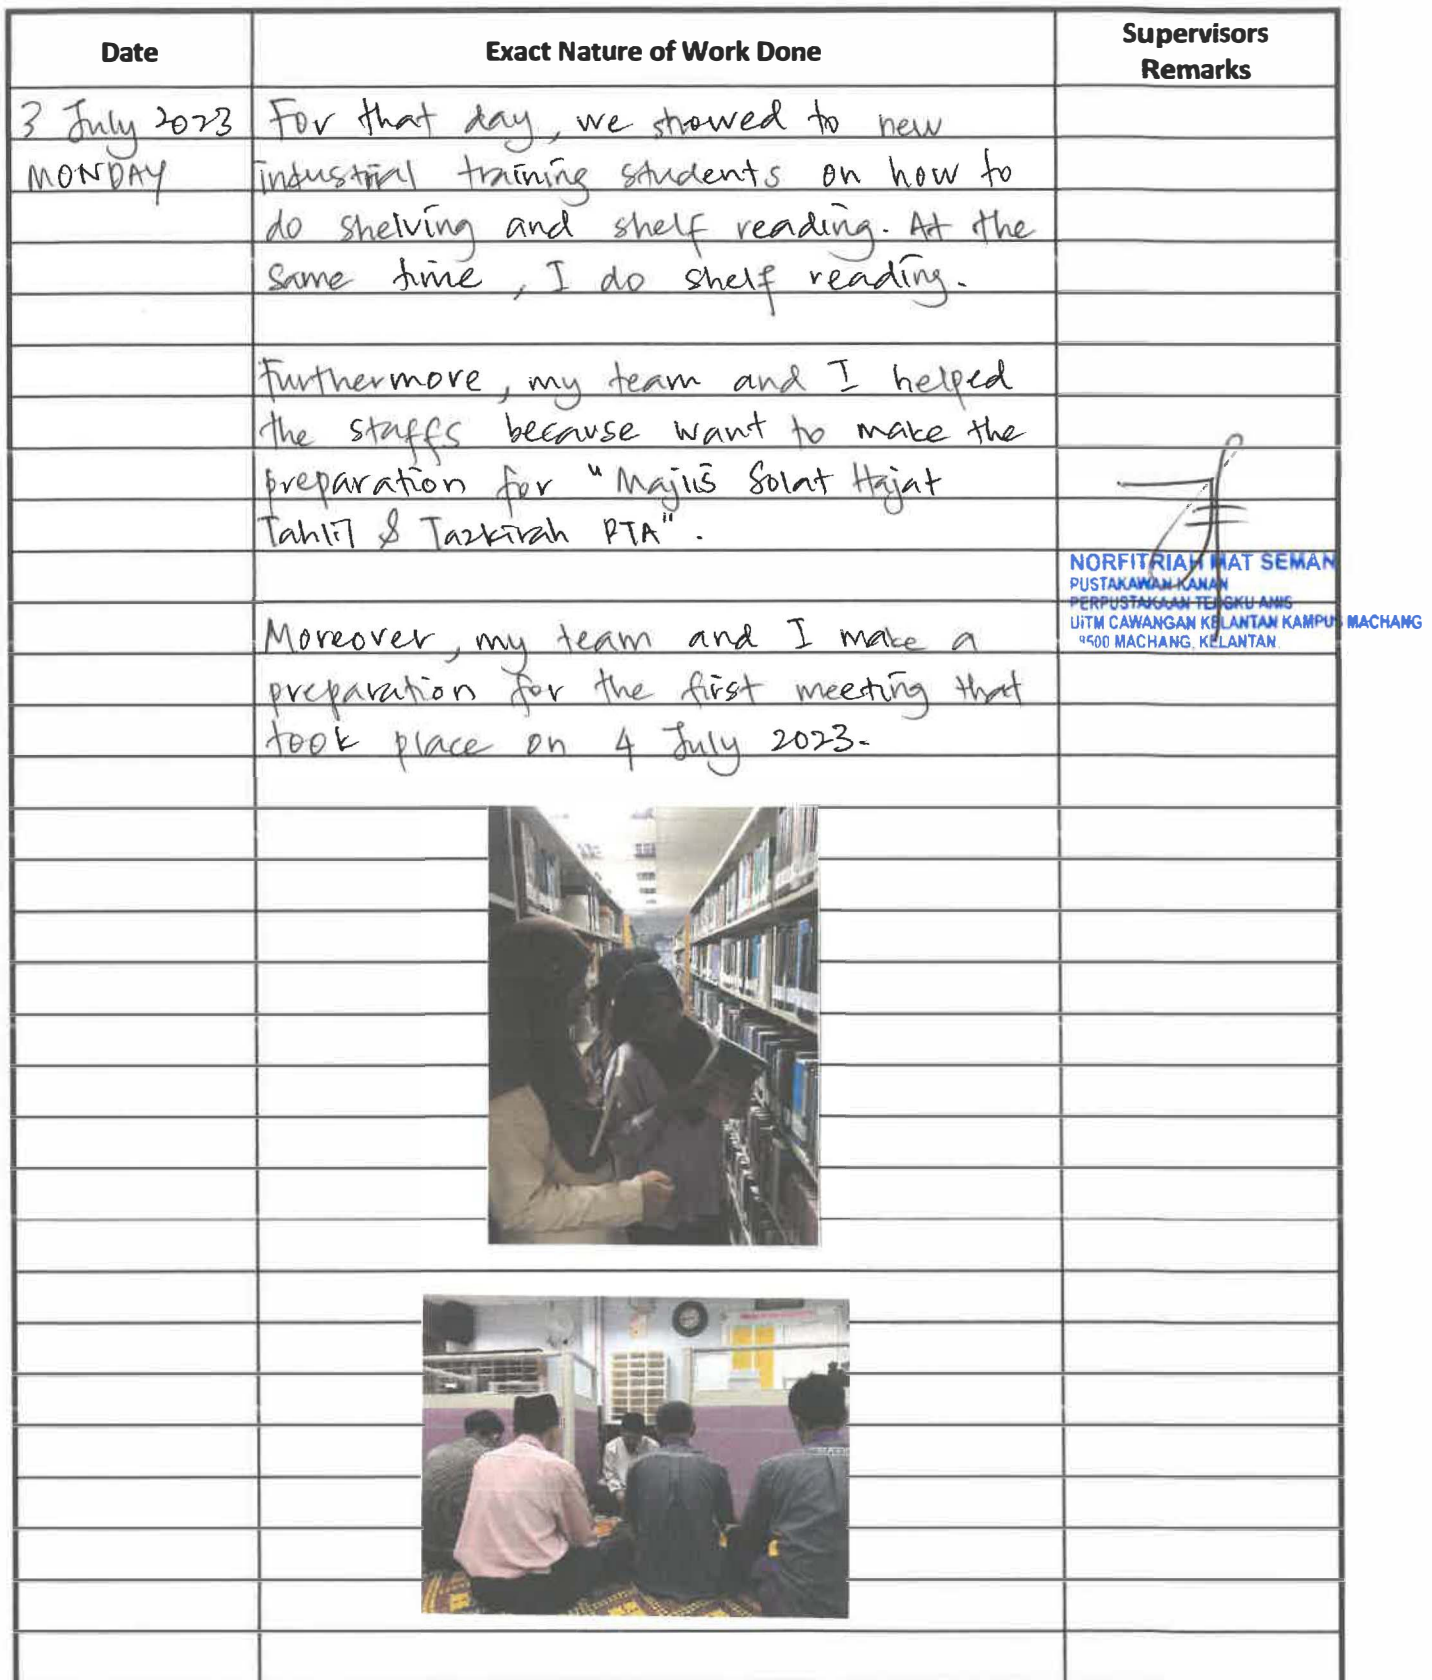 Date
Exact Nature of Work Done
Supervisors
Remarks
3 July 2023
MONDAY
For that day, we showed to new
industrial training students on how to
do shelving and shelf reading. At the
same time, I do shelf reading.
Furthermore, my team and I helped
the staffs because want to make the
preparation for "Majlis Solat Hajat
Tahlil & Tazkirah PTA".
Moreover, my team and I make a
preparation for the first meeting that
took place on 4 July 2023.
NORFITRIAH MAT SEMAN
PUSTAKAWAN KANAN
PERPUSTAKAAN TENGKU ANIS
UiTM CAWANGAN KELANTAN KAMPUS MACHANG
9500 MACHANG, KELANTAN.